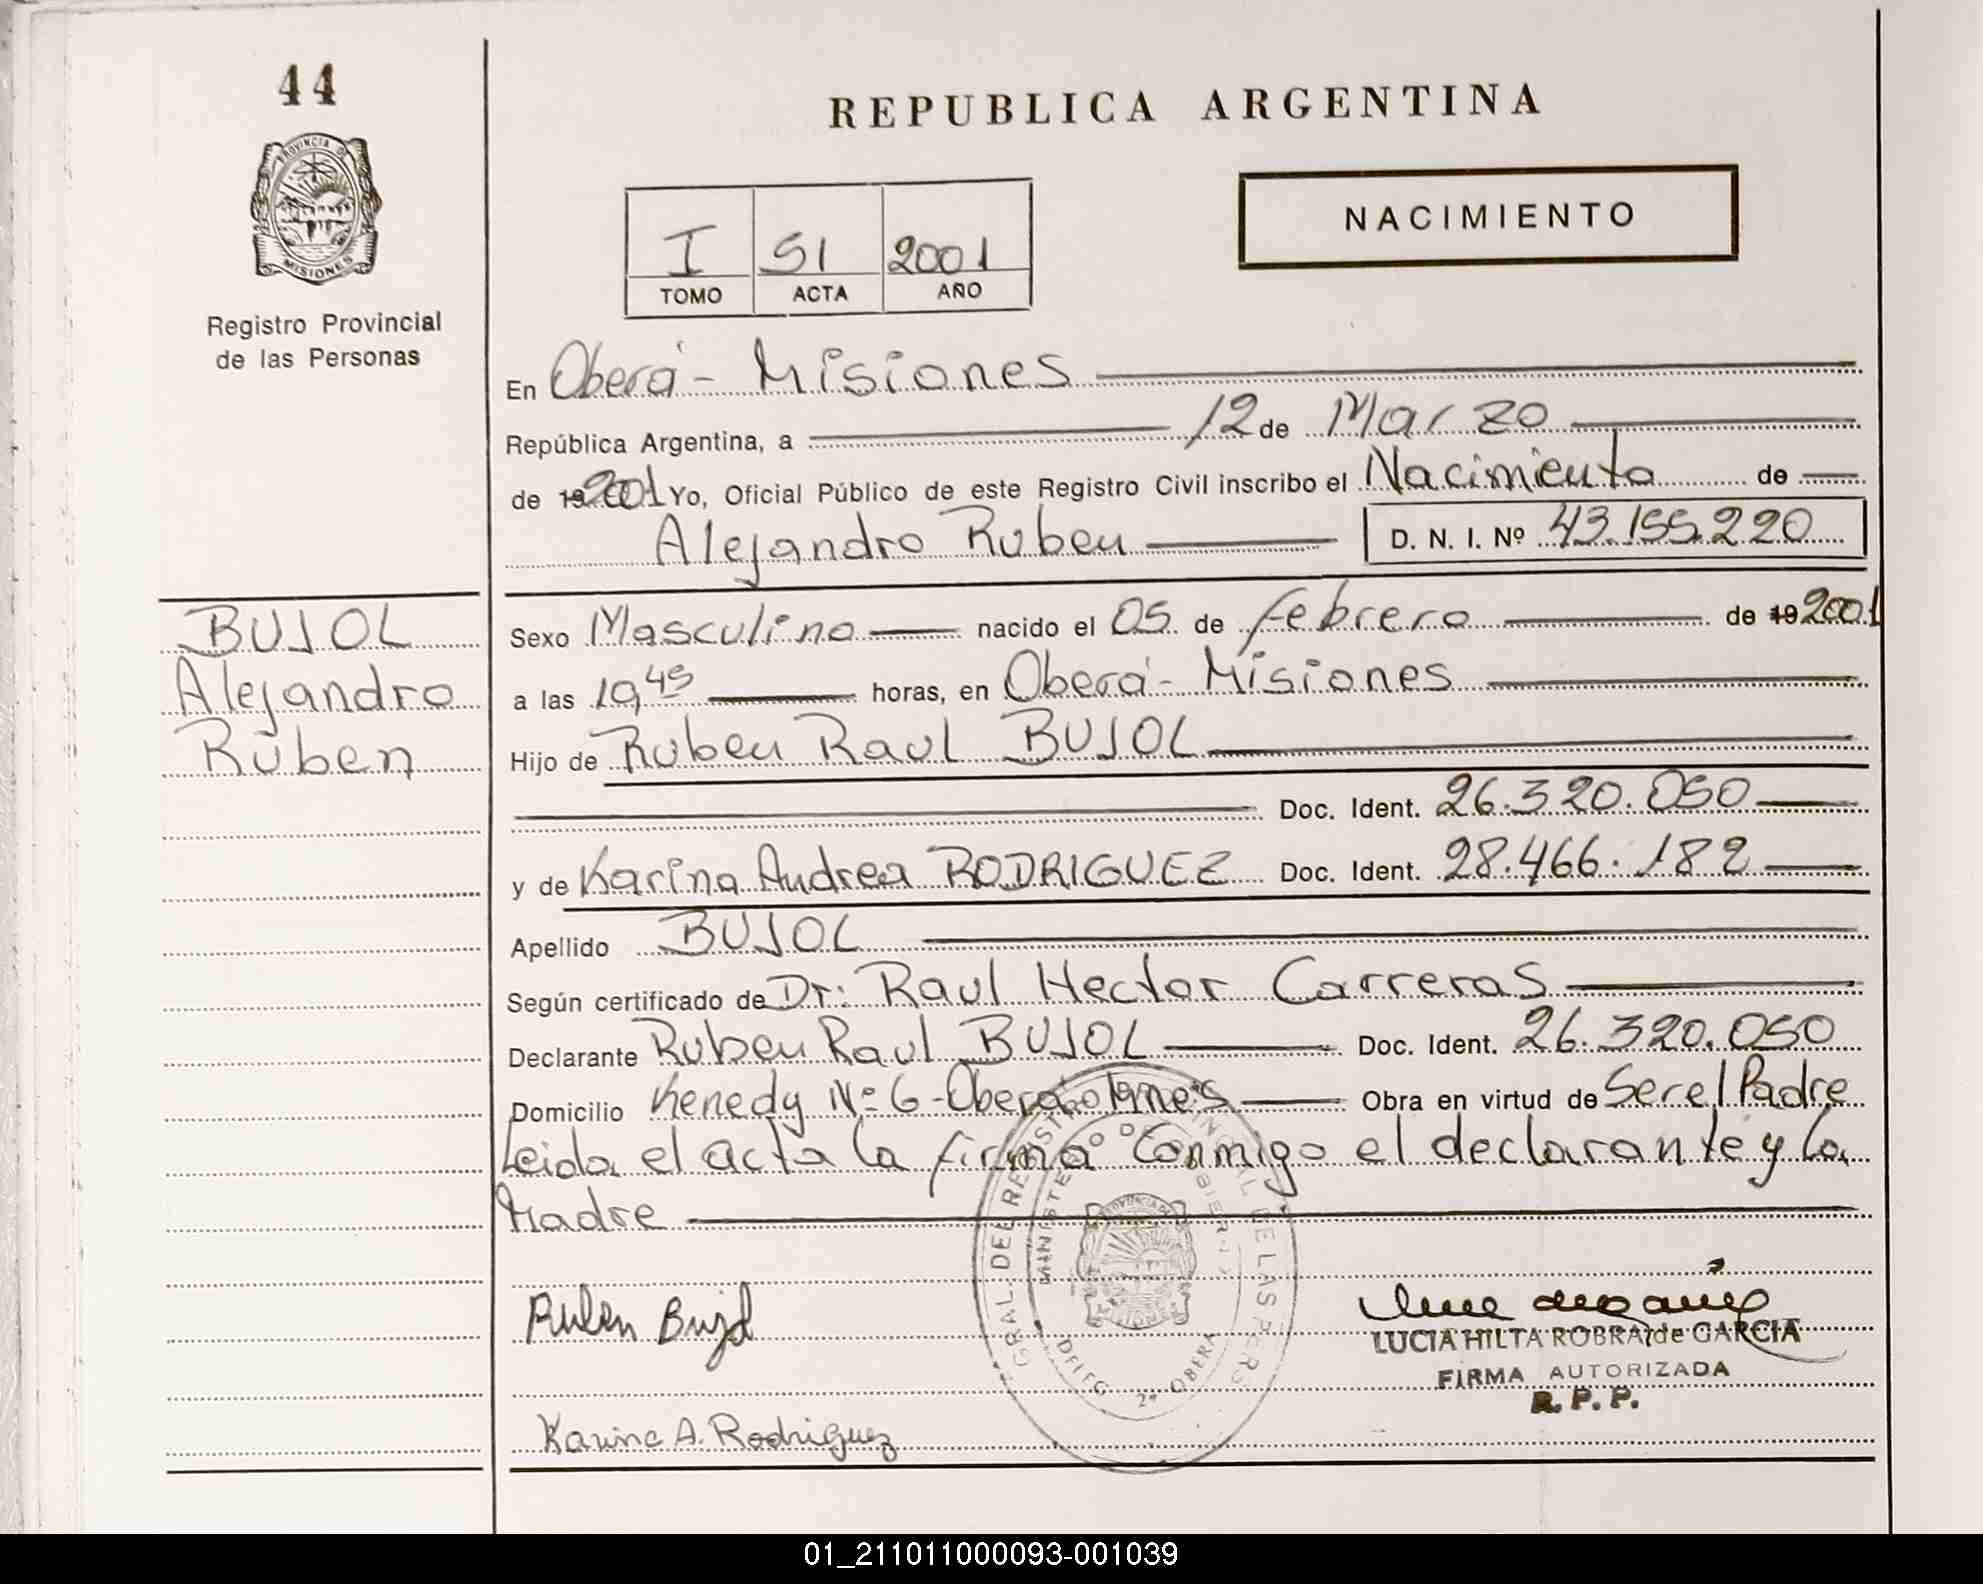 44
PROVINCIA DE
MISIONES
Registro Provincial
de las Personas
REPUBLICA ARGENTINA
NACIMIENTO
I 51 2001
TOMO ACTA AÑO
En Oberá - Misiones
República Argentina, a 12 de Marzo
de 19 2001 Yo, Oficial Público de este Registro Civil inscribo el Nacimiento de
Alejandro Ruben D. N. I. Nº 43.155.220
BUJOL
Alejandro
Ruben
Sexo Masculino nacido el 05 de febrero de 19 2001
a las 19,45 horas, en Oberá - Misiones
Hijo de Ruben Raul BUJOL
Doc. Ident. 26.320.050
y de Karina Andrea RODRIGUEZ Doc. Ident. 28.466.182
Apellido BUJOL
Según certificado de Dr: Raul Hector Carreras
Declarante Ruben Raul BUJOL Doc. Ident. 26.320.050
Domicilio Kenedy Nº 6 - Oberá Obra en virtud de Ser el Padre
Leida el acta la firma Conmigo el declarante y la
Madre
GRAL. DEL REGISTRO PROVINCIAL DE LAS PERS
MINISTERIO DE GOBIERNO
DELEG. 2ª OBERA
Ruben Bujol
LUCIA HILTA ROBRA de GARCIA
FIRMA AUTORIZADA
R. P. P.
Karina A. Rodriguez
01_211011000093-001039